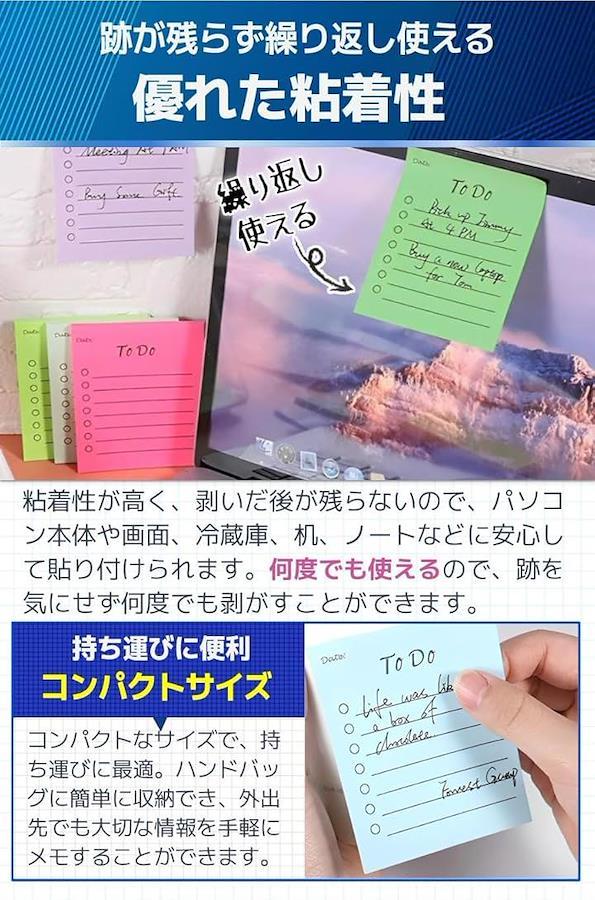 跡が残らず繰り返し使える
優れた粘着性
Meeting At 1 AM
Buy Some Gift
繰り返し
使える
Date:
To Do
Pick up Jimmy
At 4 PM
Buy a new laptop
for Tom
Date:
Date:
To Do
粘着性が高く、剥いだ後が残らないので、パソコ
ン本体や画面、冷蔵庫、机、ノートなどに安心し
て貼り付けられます。何度でも使えるので、跡を
気にせず何度でも剥がすことができます。
持ち運びに便利
コンパクトサイズ
コンパクトなサイズで、持
ち運びに最適。ハンドバッ
グに簡単に収納でき、外出
先でも大切な情報を手軽に
メモすることができます。
Date:
To Do
Life was like
a box of
chocolate.
Forrest Gump